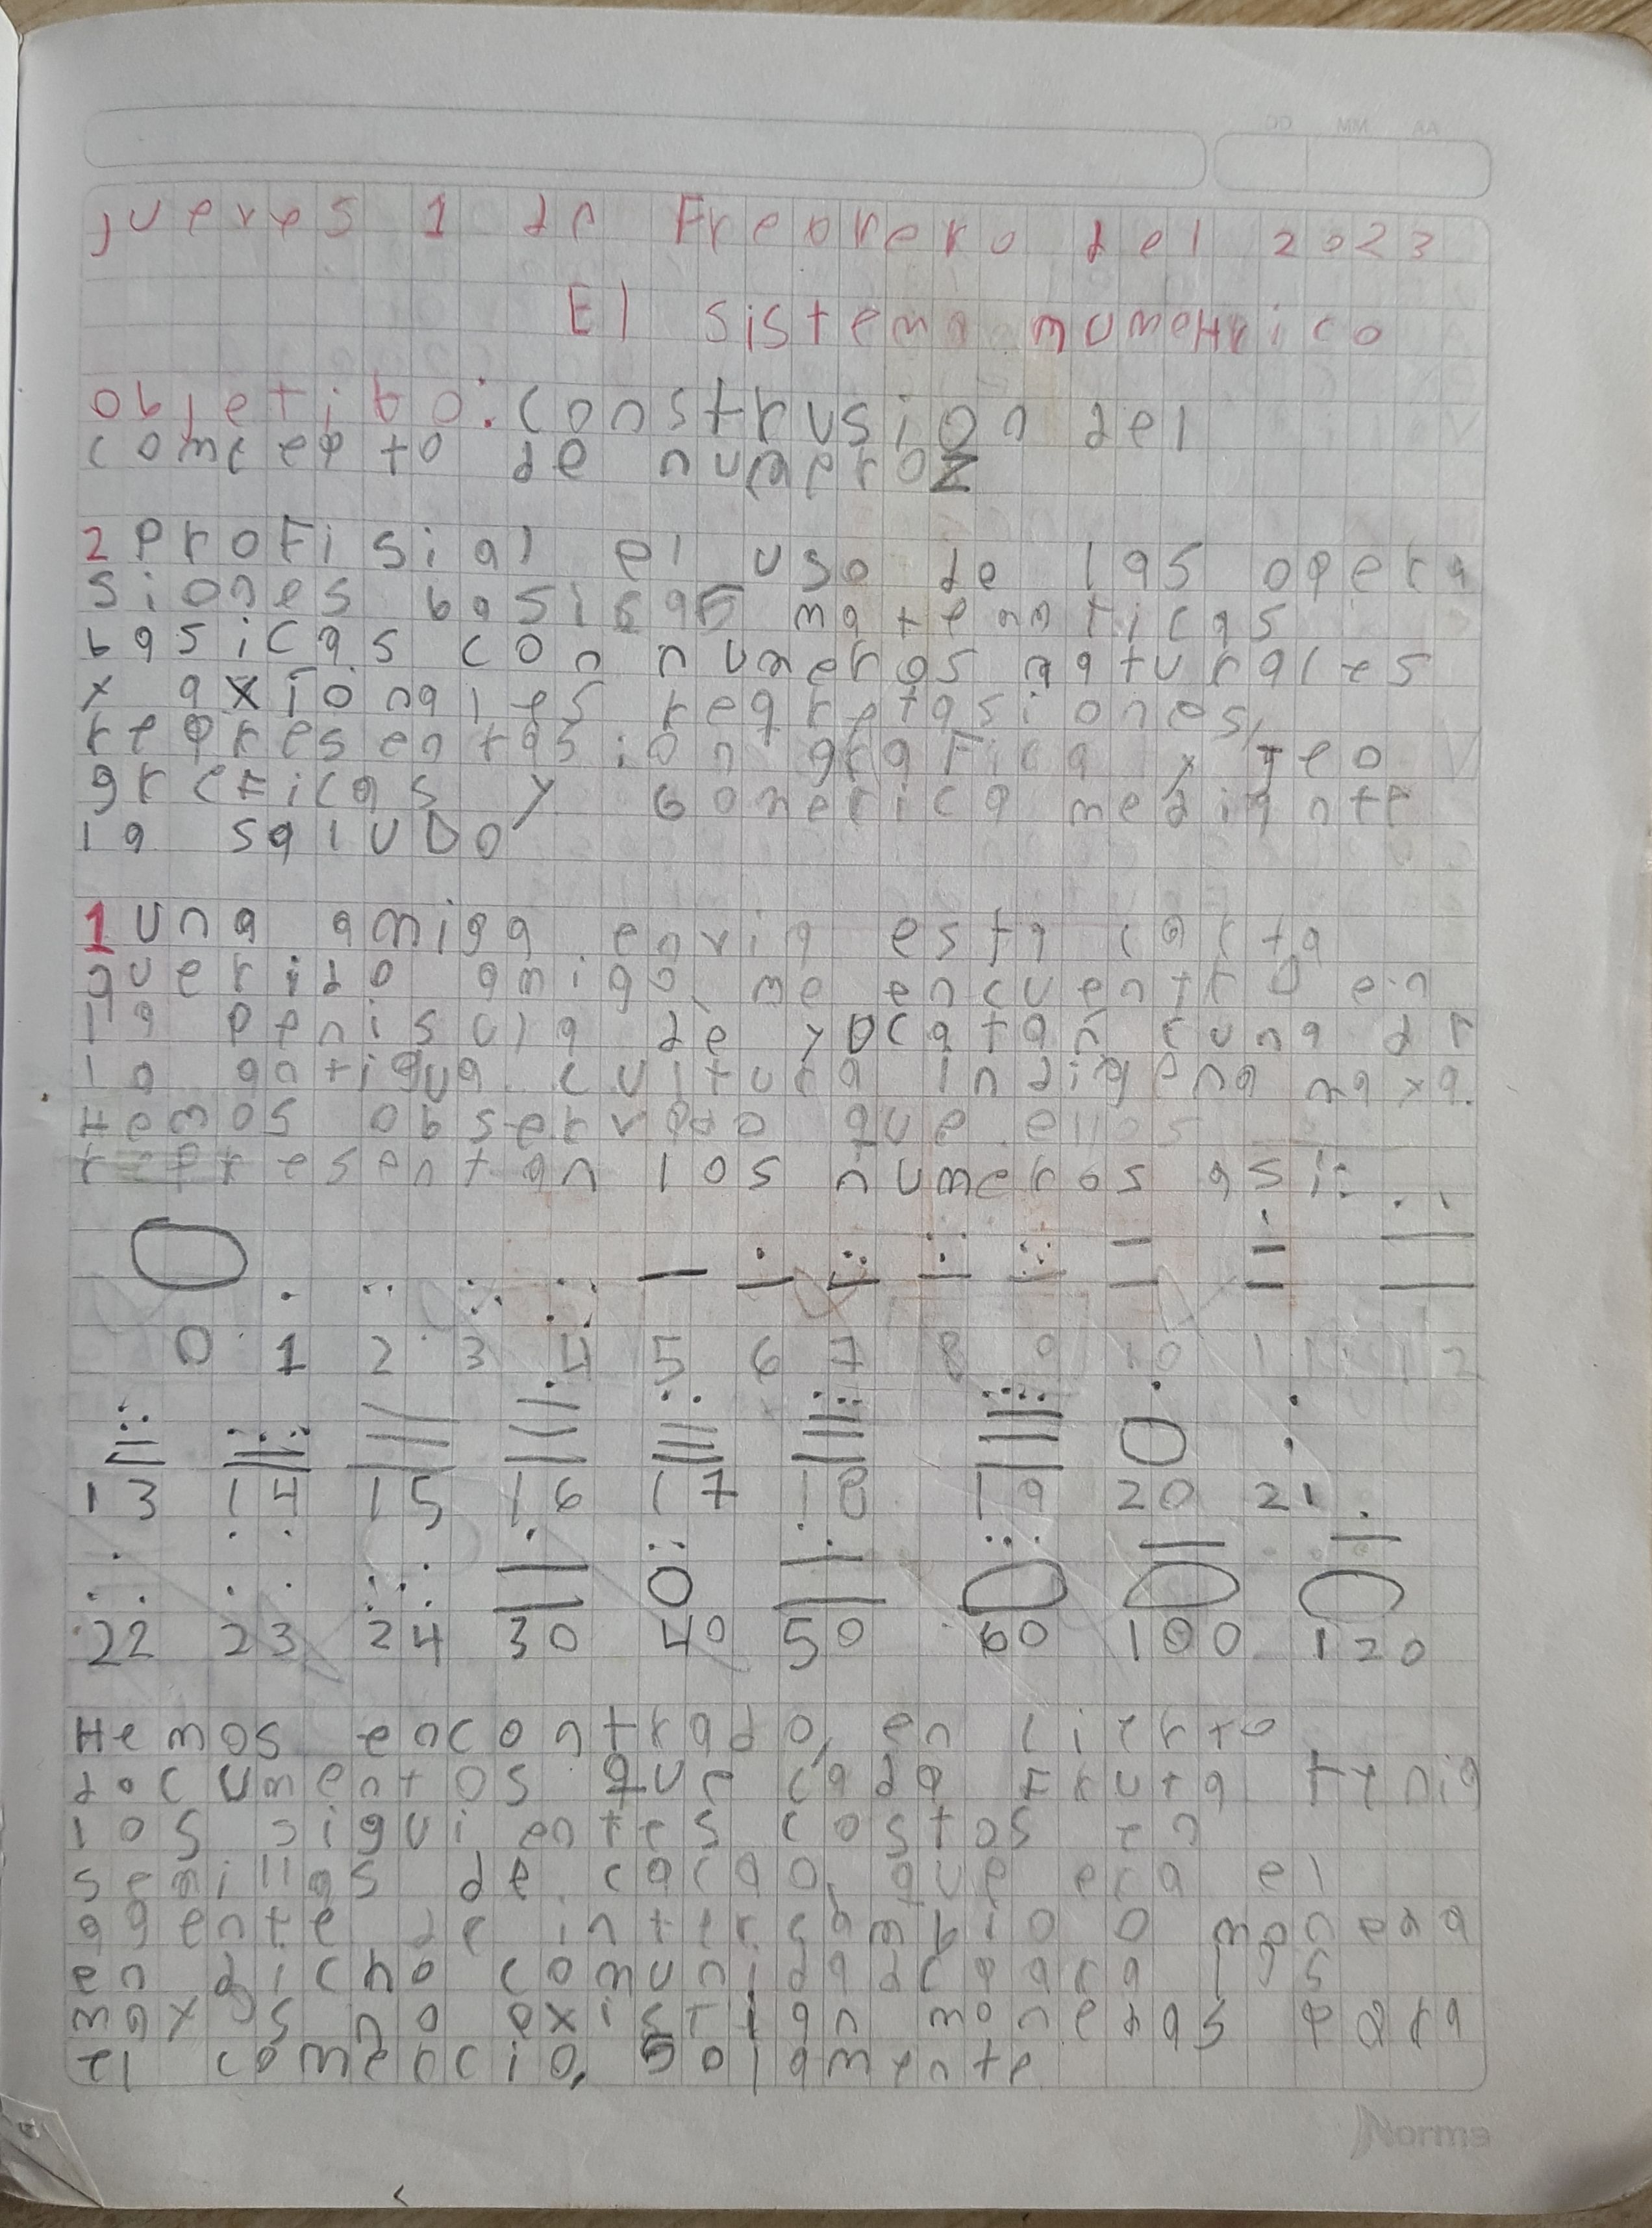 jueves 1 de Freorero del 2023
El sistema numerico
objetibo: construsion del
concepto de numeroz
2 Profisial el uso de las opera
siones basicas matematicas
basicas con numeros naturales
y axionales
representasion grafica y
graficas y Gomerica mediante
la saluDo
1 una amiga envia esta carta
querido amigo, me encuentro en
la penisula de yucatan cuna de
la antigua cultura indigena maya.
Hemos observado que ellos
representan los numeros asi:
0 1 2 3 4 5 6 7 8 9 10 11 12
13 14 15 16 17 18 19 20 21
22 23 24 30 40 50 60 100 120
Hemos encontrado, en cierto
documentos que cada fruta tenia
los siguientes costos en
semillas de cacao, que era el
agente de intercambio o moneda
en dicho comunidad para las
mayas no existian monedas para
el comercio, solamente
Norma